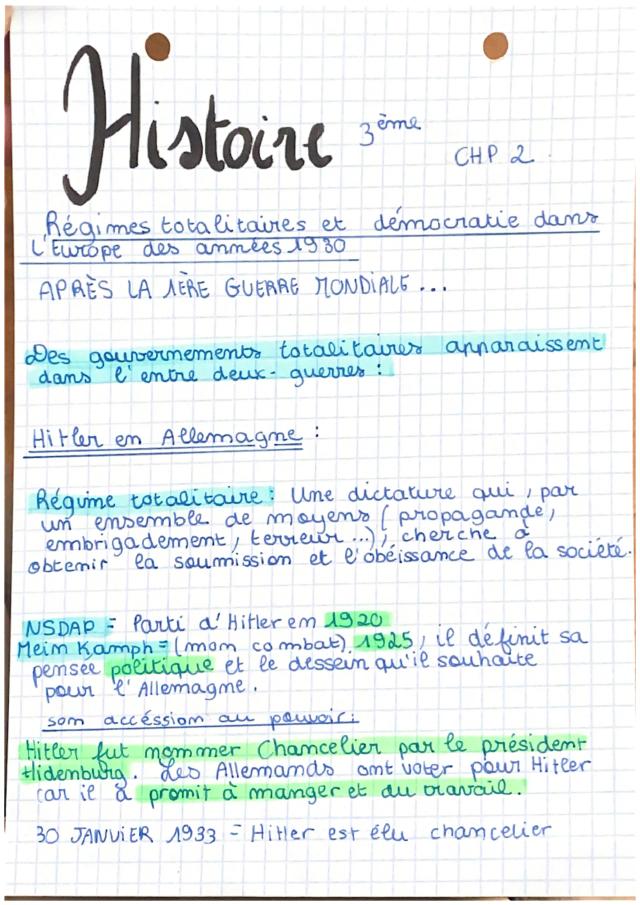 Histoire 3ème
CHP 2
Régimes totalitaires et démocratie dans
l'Europe des années 1930
APRÈS LA 1ÈRE GUERRE MONDIALE...
Des gouvernements totalitaires apparaissent
dans l'entre deux-guerres :
Hitler en Allemagne :
Régime totalitaire : Une dictature qui, par
un ensemble de moyens (propagande,
embrigadement, terreur...), cherche à
obtenir la soumission et l'obéissance de la société.
NSDAP = Parti d'Hitler en 1920
Meim Kamph = (mon combat) 1925, il définit sa
pensée politique et le dessein qu'il souhaite
pour l'Allemagne.
son accéssion au pouvoir :
Hitler fut nommer Chancelier par le président
Hidenburg. Les Allemands ont voter pour Hitler
car il a promit à manger et du travail.
30 JANVIER 1933 = Hitler est élu chancelier